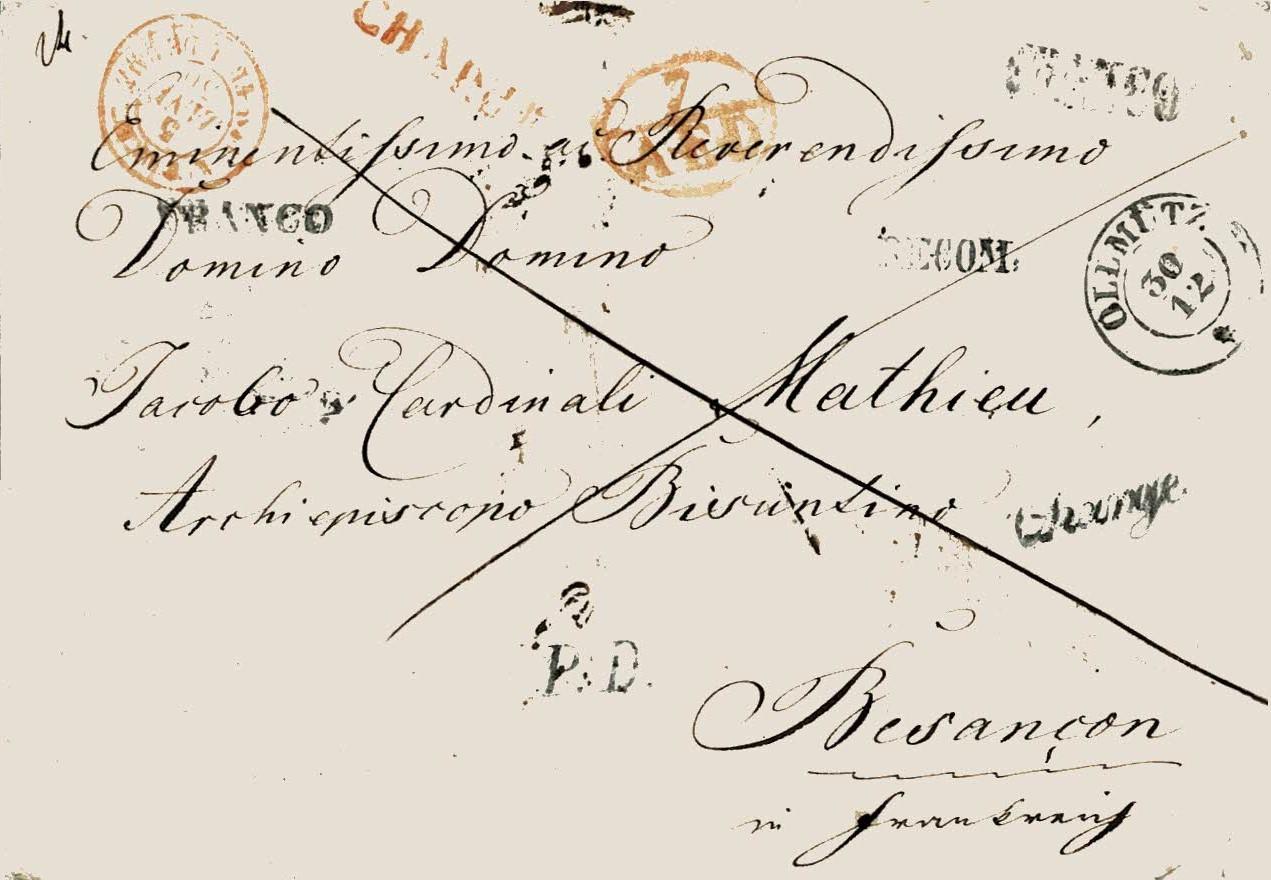 CHARGÉ
FRANCO
Eminentissimo ac Reverendissimo
P.D.
FRANCO
Domino Domino
RECOM:
OLLMÜTZ
30
12
Jacobo Cardinali Mathieu,
Archiepiscopo Bisuntino
Chargé.
P.D.
Besançon
in Frankreich